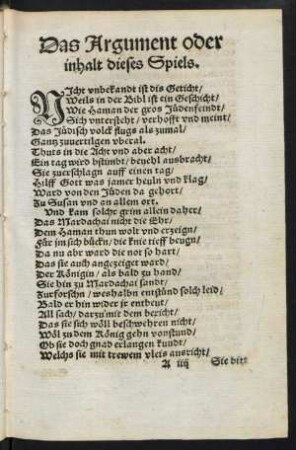 Das Argument oder
inhalt dieses Spiels.
NIcht vnbekandt ist dis Geticht/
Weils in der Bibl ist ein Geschicht/
Wie Haman der gros Jüdenfeindt/
Sich vntersteht/ verhofft vnd meint/
Das Jüdisch volck flugs als zumal/
Gantz zuuertilgen vberal.
Thuts in die Acht vnd aber acht/
Ein tag wird bstimbt/ beuehl ausbracht/
Sie zuerschlagn auff einen tag/
Hilff Gott was jamer heuln vnd klag/
Ward von den Jüden da gehort/
Zu Susan vnd an allem ort.
Vnd kam solchr grim allein daher/
Das Mardachai nicht die Ehr/
Dem Haman thun wolt vnd erzeign/
Für jm sich bückn/ die knie tieff beugn/
Da nu abr ward die not so hart/
Das sie auch angezeiget ward/
Der Königin/ als bald zu hand/
Sie hin zu Mardachai sandt/
Zurforschn/ weshalbn entstünd solch leid/
Bald er hin wider jr entbeut/
All sach/ darzu mit dem bericht/
Das sie sich wöll beschwehren nicht/
Wöl zu dem König gehn vorstund/
Ob sie doch gnad erlangen kundt/
Welchs sie mit trewem vleis ausricht/
A iiij Sie bitt